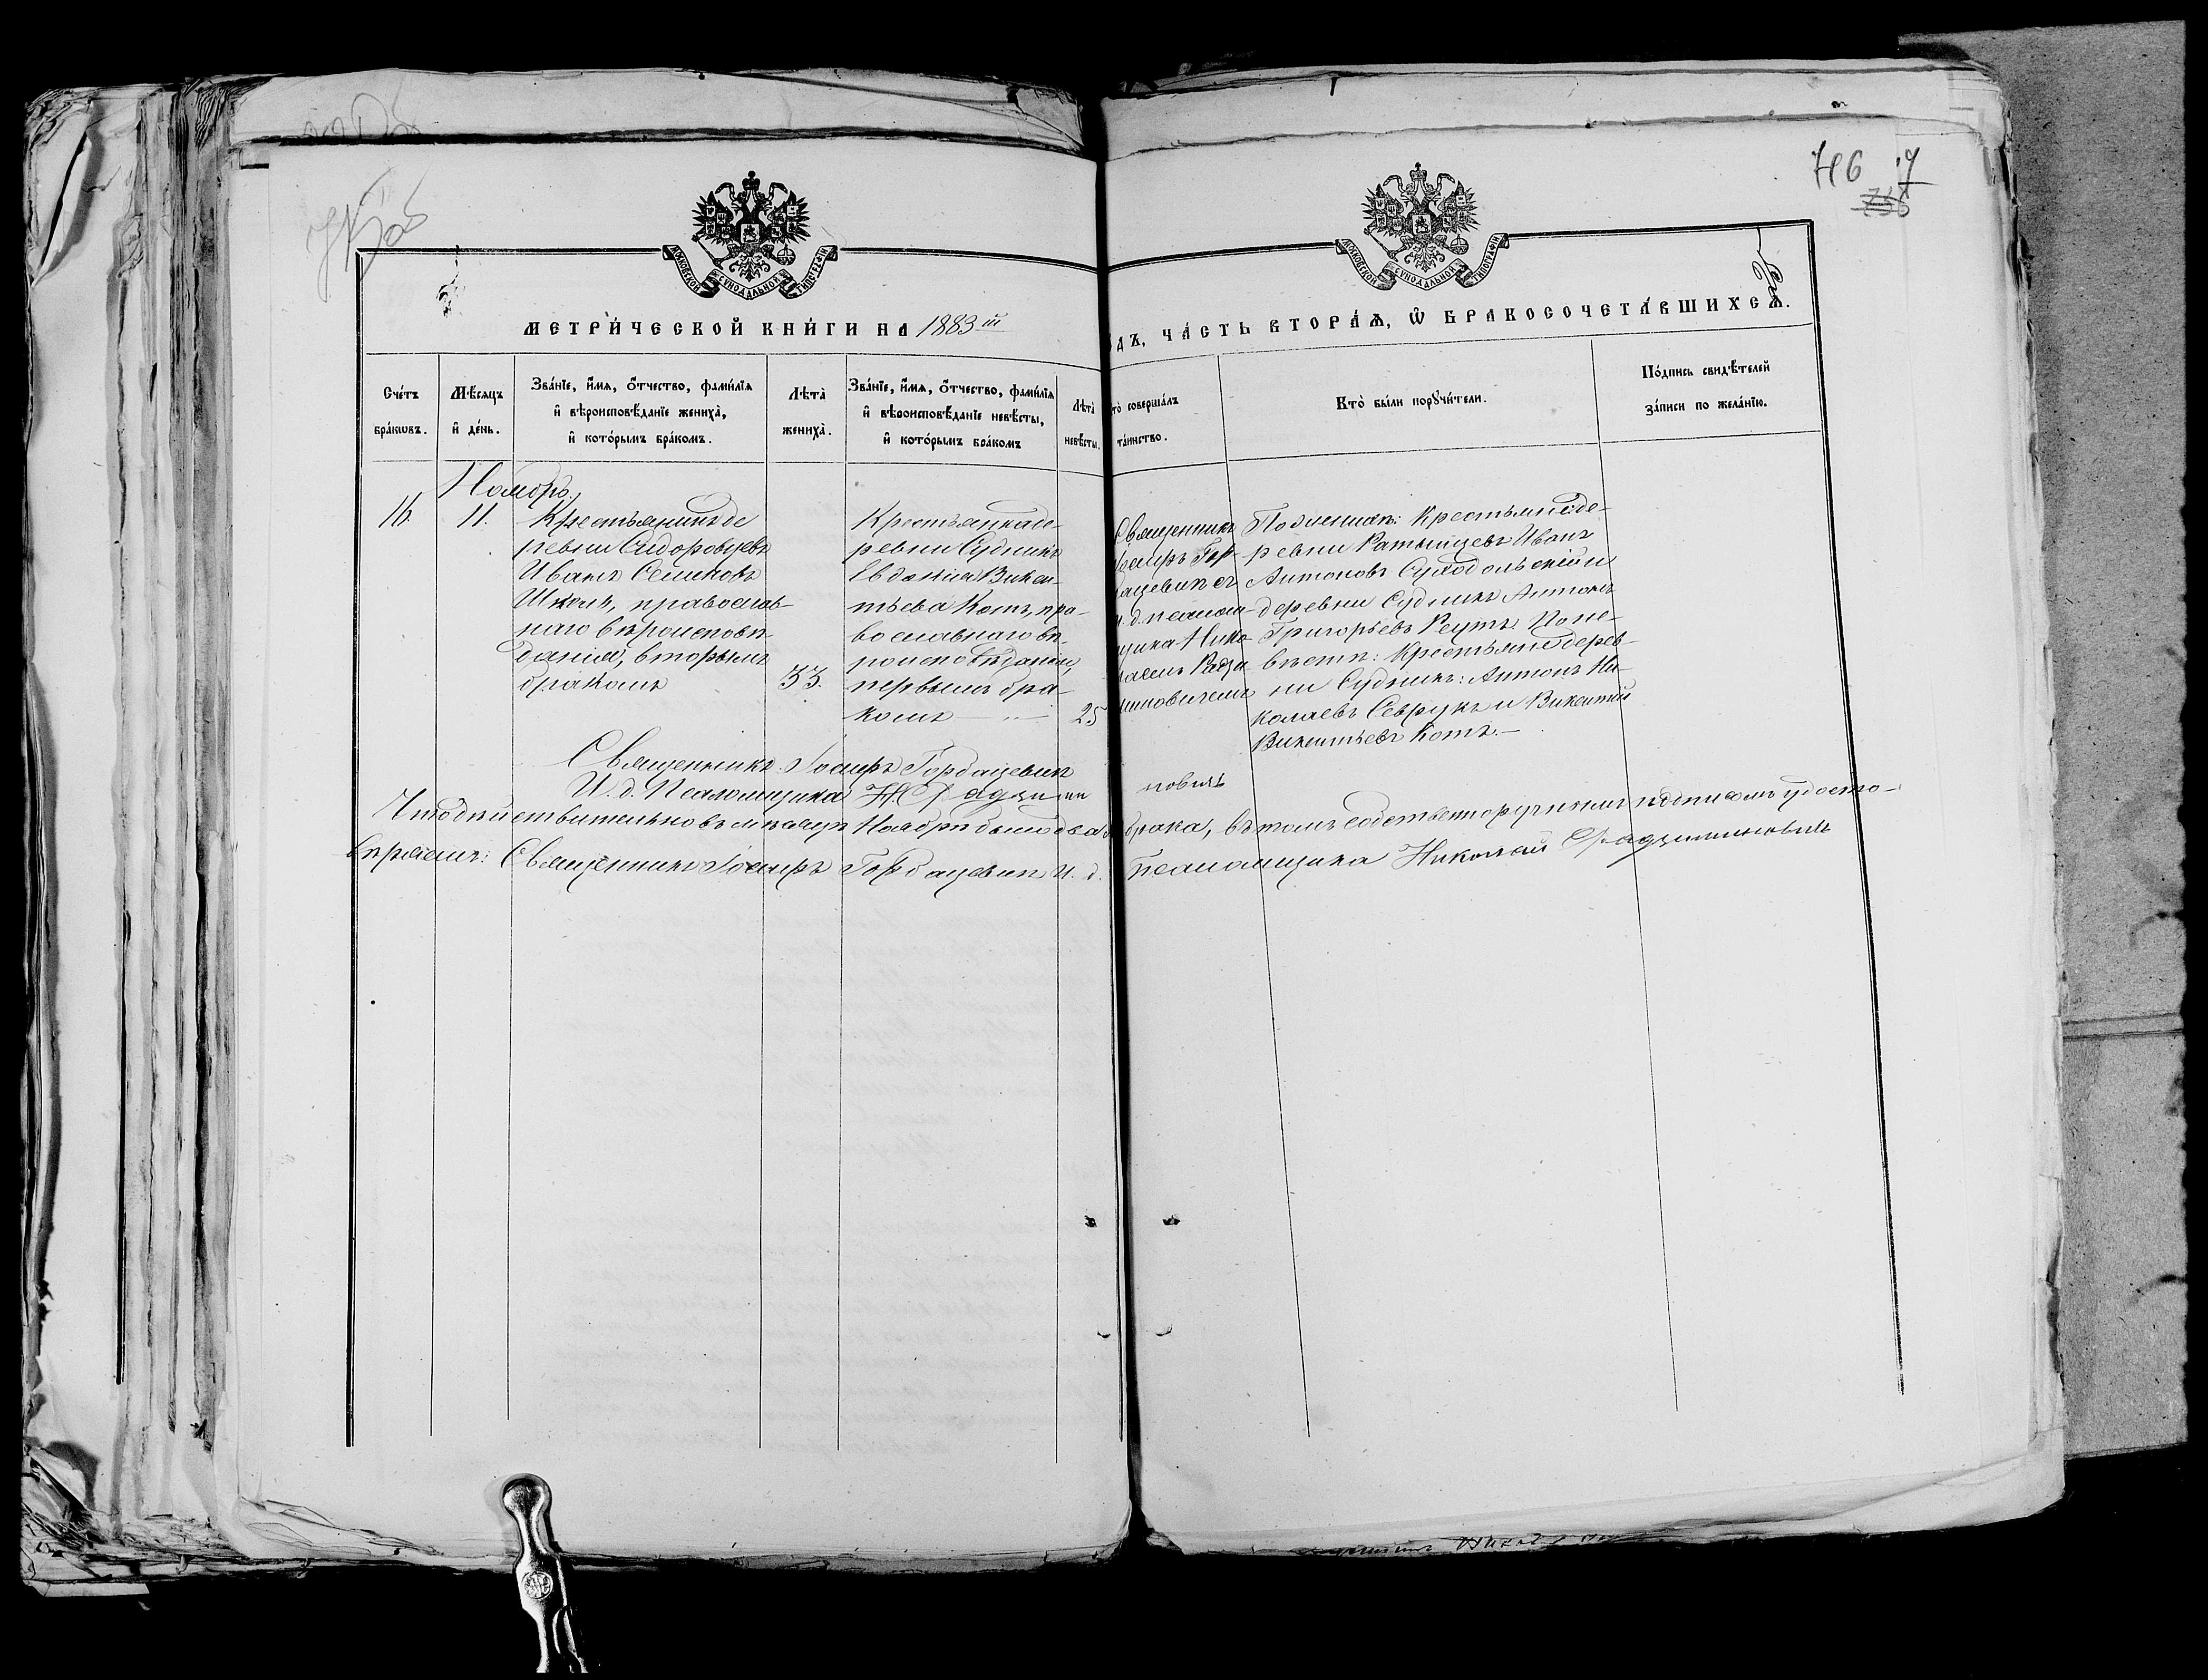 746
МОСКОВСКОЙ СѴНОДАЛЬНОЙ ТИПОГРАФІИ
МОСКОВСКОЙ СѴНОДАЛЬНОЙ ТИПОГРАФІИ
МЕТРИ́ЧЕСКОЙ КНИ́ГИ НА 1883 ій
ДЪ, ЧА́СТЬ ВТОРА́Ѧ, Ѿ БРАКОСОЧЕТА́ВШИХСѦ.
Сче́тъ
бра́кѡвъ.
Мѣ́сяцъ
и҆ де́нь.
Зва́нїе, и҆́мя, о҆́тчество, фами́лїя
и҆ вѣроисповѣ́данїе жениха̀,
и҆ кото́рымъ бра́комъ.
Лѣ́та̀
жениха̀.
Зва́нїе, и҆́мя, о҆́тчество, фами́лїя
и҆ вѣроисповѣ́данїе невѣ́сты,
и҆ кото́рымъ бра́комъ
Лѣ́та̀
невѣ́сты.
то̀ соверша́лъ
та́инство.
Кто̀ бы́ли порꙋчи́тели.
По́дпись свидѣ́телей
за́писи по жела́нїю.
Ноябрь.
16.
11.
Крестьянинъ де
ревни Сидоровцевъ
Иванъ Семеновъ
православ-
наго вѣроисповѣ-
данія, вторымъ
бракомъ
33.
Крестьянка де-
ревни Судникъ
Евдокія Викен-
тьева Котъ, пра-
вославнаго вѣ-
роисповѣданія,
первымъ бра-
комъ
25
Священникъ
Іосифъ Гор-
дацевичъ съ
и. д. псалом-
щика Нико-
лаемъ Радзи-
миновичемъ
По женихѣ: крестьяне де-
ревни Ратынцевъ Иванъ
Антоновъ Суходольскій и
деревни Судникъ Антонъ
Григорьевъ Реутъ. По не-
вѣстѣ: крестьяне дерев-
ни Судникъ: Антонъ Ни-
колаевъ Севрукъ и Викентій
Викентьевъ Котъ.—
Священникъ Іосифъ Гордацевичъ
И. д. Псаломщика Н. Радзими новичъ
Что дѣйствительно въ мѣсяцѣ Ноябрѣ было два брака, въ томъ собственноручнымъ подписомъ удосто-
вѣряемъ: Священникъ Іосифъ Гордацевичъ И. д. псаломщика Николай Радзиминовичъ